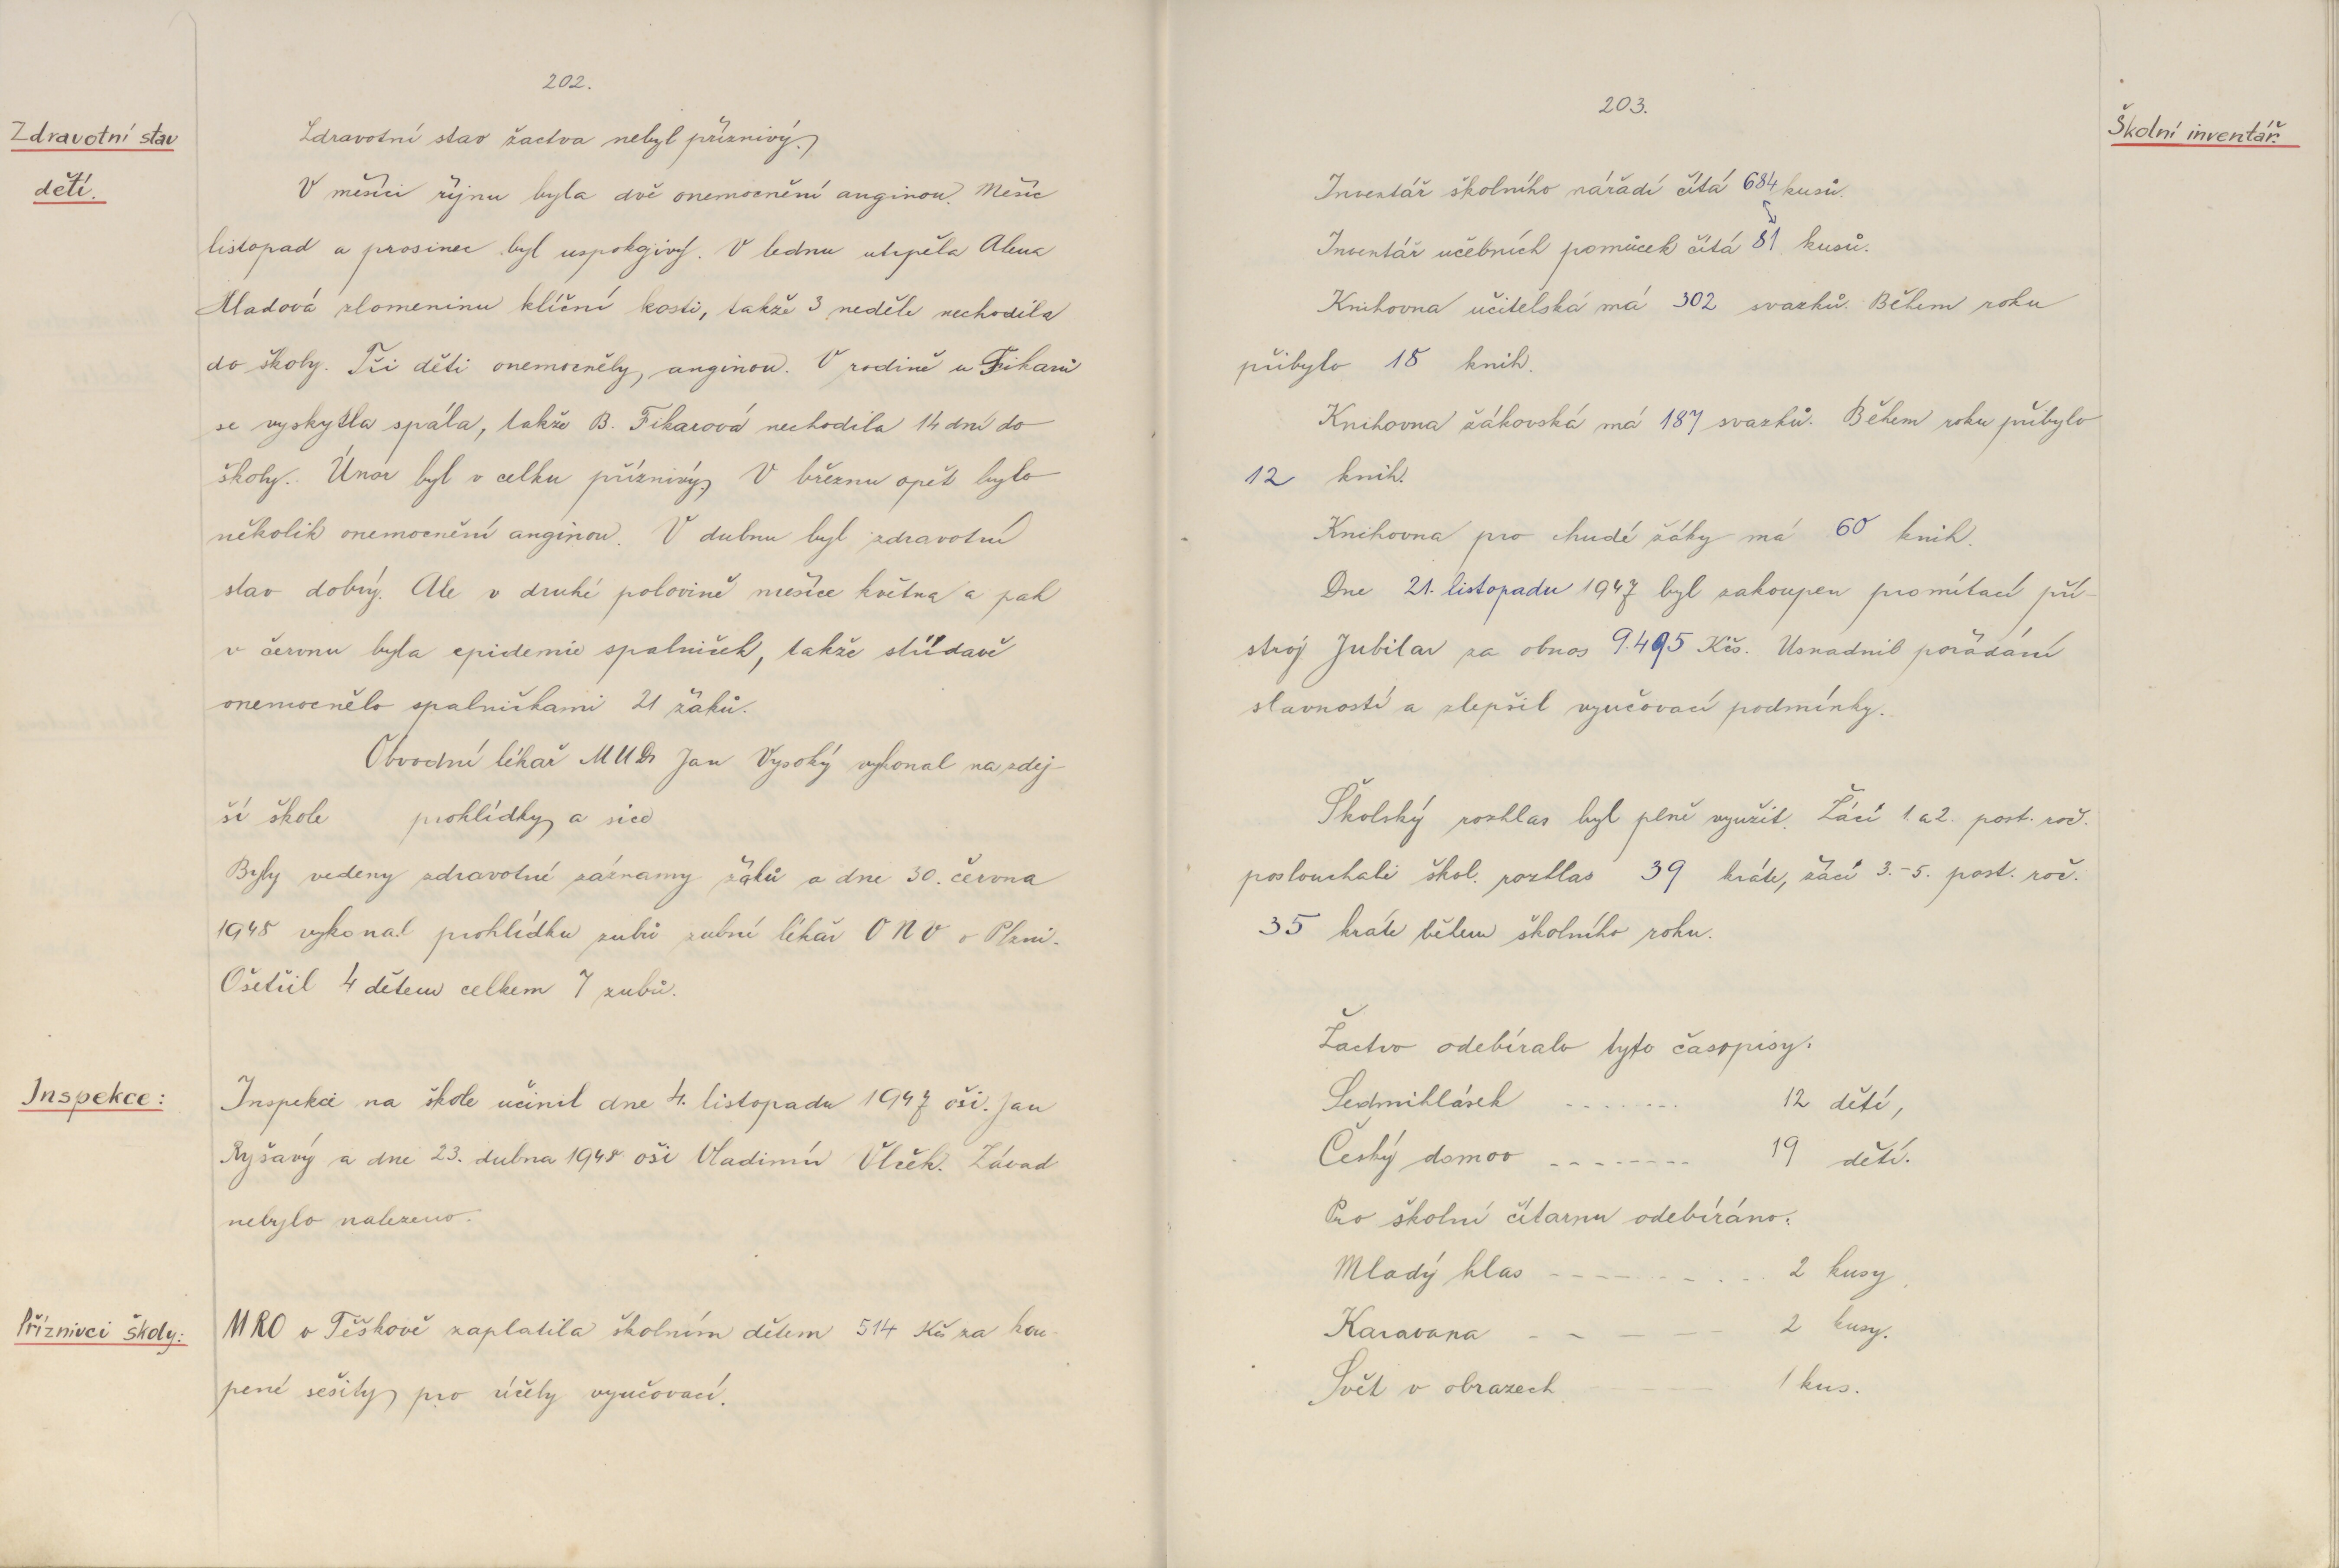 202.
Zdravotní stav
dětí.
Zdravotní stav žactva nebyl příznivý.
V měsíci říjnu byla dvě onemocnění anginou. Měsíc
listopad a prosinec byl uspokojivý. V lednu utrpěla Alena
Hladová zlomeninu klíční kosti, takže 3 neděle nechodila
do školy. Tři děti onemocněly anginou. V rodině u Fikarů
se vyskytla spála, takže B. Fikarová nechodila 14 dní do
školy. Únor byl v celku příznivý. V březnu opět bylo
několik onemocnění anginou. V dubnu byl zdravotní
stav dobrý. Ale v druhé polovině měsíce května a pak
v červnu byla epidemie spalniček, takže střídavě
onemocnělo spalničkami 21 žáků.
Obvodní lékař MUDr Jan Vysoký vykonal na zdej-
ší škole prohlídky a sice
Byly vedeny zdravotní záznamy žáků a dne 30. června
1948 vykonal prohlídku zubů zubní lékař ONV v Plzni.
Ošetřil 4 dětem celkem 7 zubů.
Inspekce:
Inspekci na škole učinil dne 4. listopadu 1947 oši. Jan
Ryšavý a dne 23. dubna 1948 oši Vladimír Vlček. Závad
nebylo nalezeno.
Příznivci školy:
MRO v Těškově zaplatila školním dětem 514 Kčs za kou-
pené sešity pro účely vyučovací.
203.
Školní inventář.
Inventář školního nářadí čítá 684 kusů.
Inventář učebních pomůcek čítá 81 kusů.
Knihovna učitelská má 302 svazků. Během roku
přibylo 18 knih.
Knihovna žákovská má 187 svazků. Během roku přibylo
12 knih.
Knihovna pro chudé žáky má 60 knih.
Dne 21. listopadu 1947 byl zakoupen promítací pří-
stroj Jubilar za obnos 9.495 Kčs. Usnadnil pořádání
slavností a zlepšil vyučovací podmínky.
Školský rozhlas byl plně využit. Žáci 1. a 2. post. roč.
poslouchali škol. rozhlas 39 kráte, žáci 3.-5. post. roč.
35 kráte během školního roku.
Žactvo odebíralo tyto časopisy:
Sedmihlásek ....... 12 dětí,
Český domov -------- 19 dětí.
Pro školní čítárnu odebíráno:
Mladý hlas --------- 2 kusy
Karavana - - - - - 2 kusy.
Svět v obrazech - - - - 1 kus.